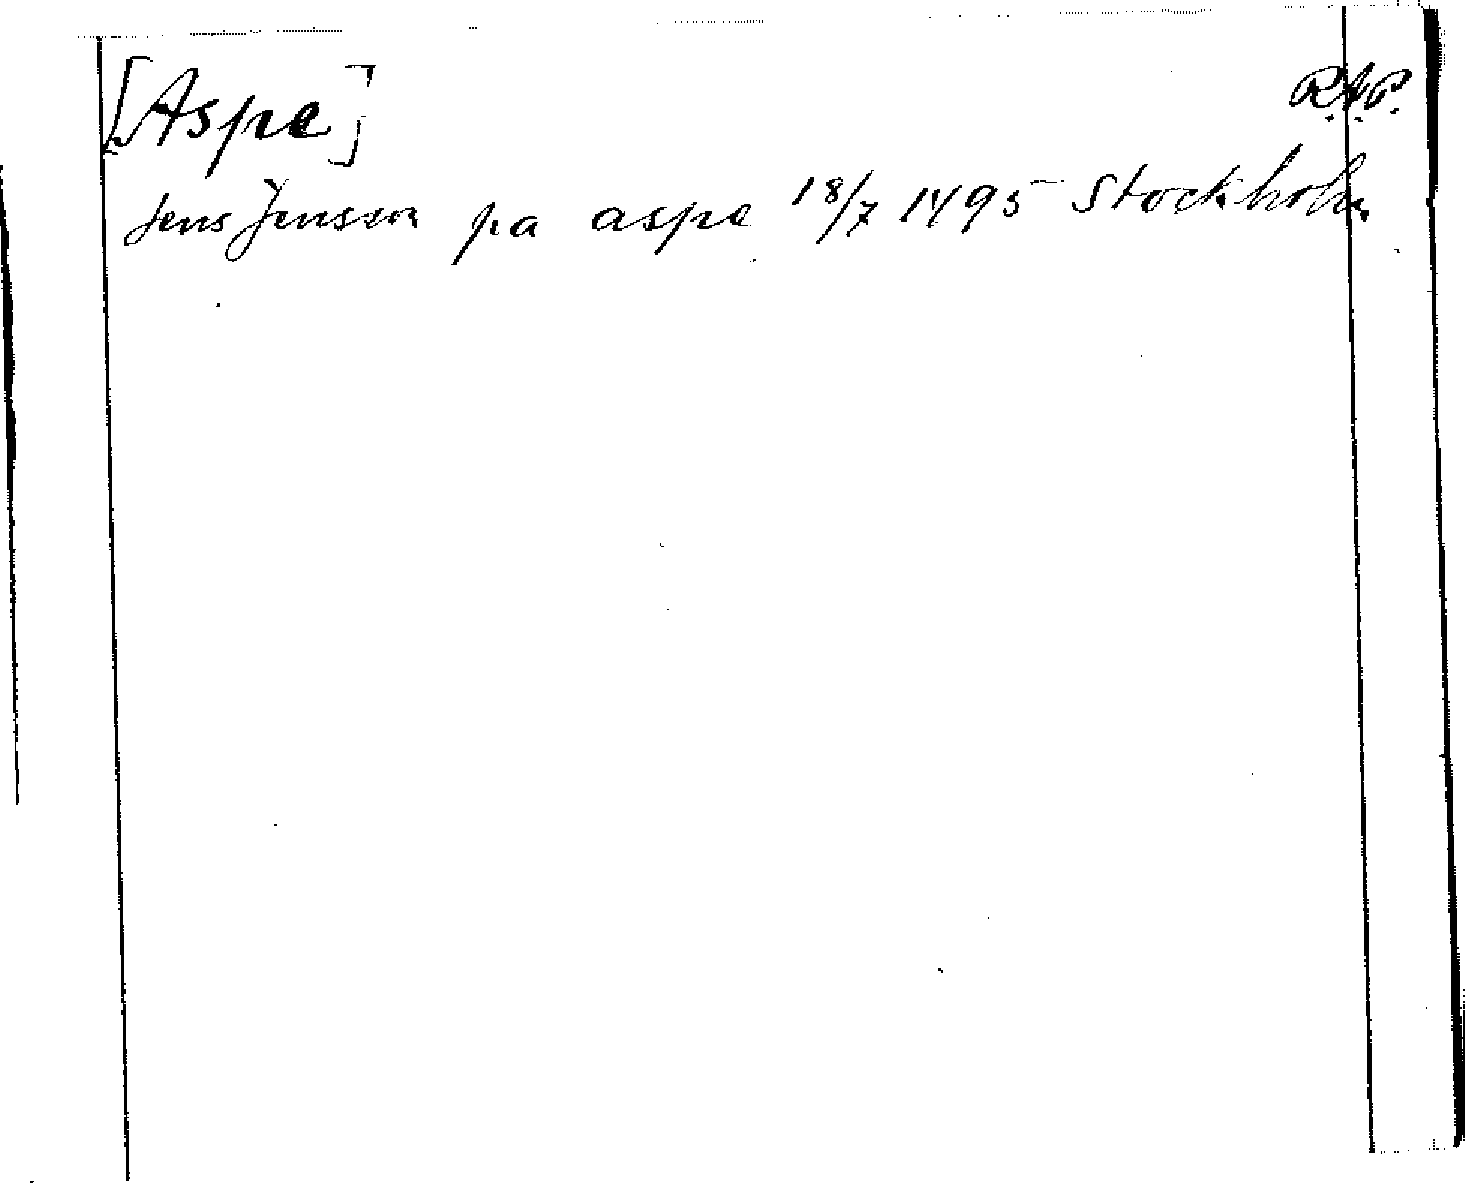 [Aspe] R.A.P.
Jens Jensson pa aspe 18/7 1495 Stockholm